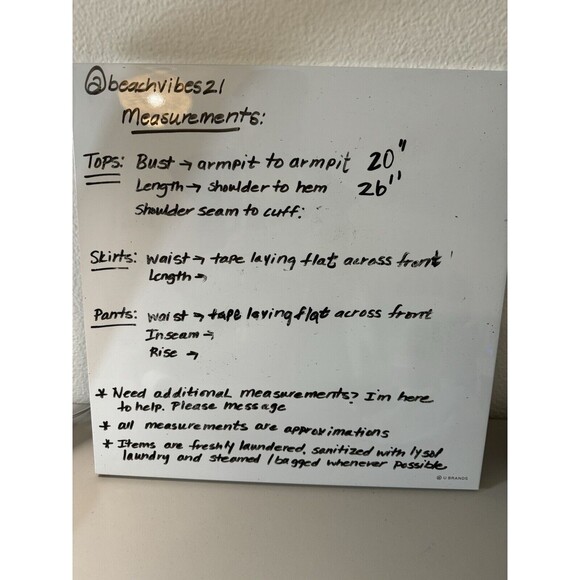 @beachvibes21
Measurements:
Tops: Bust → armpit to armpit 20"
Length → shoulder to hem 26"
Shoulder seam to cuff:
Skirts: waist → tape laying flat across front
Length →
Pants: waist → tape laying flat across front
Inseam →
Rise →
* Need additional measurements? I'm here
to help. Please message
* all measurements are approximations
* Items are freshly laundered, sanitized with lysol
laundry and steamed / bagged whenever possible
U BRANDS